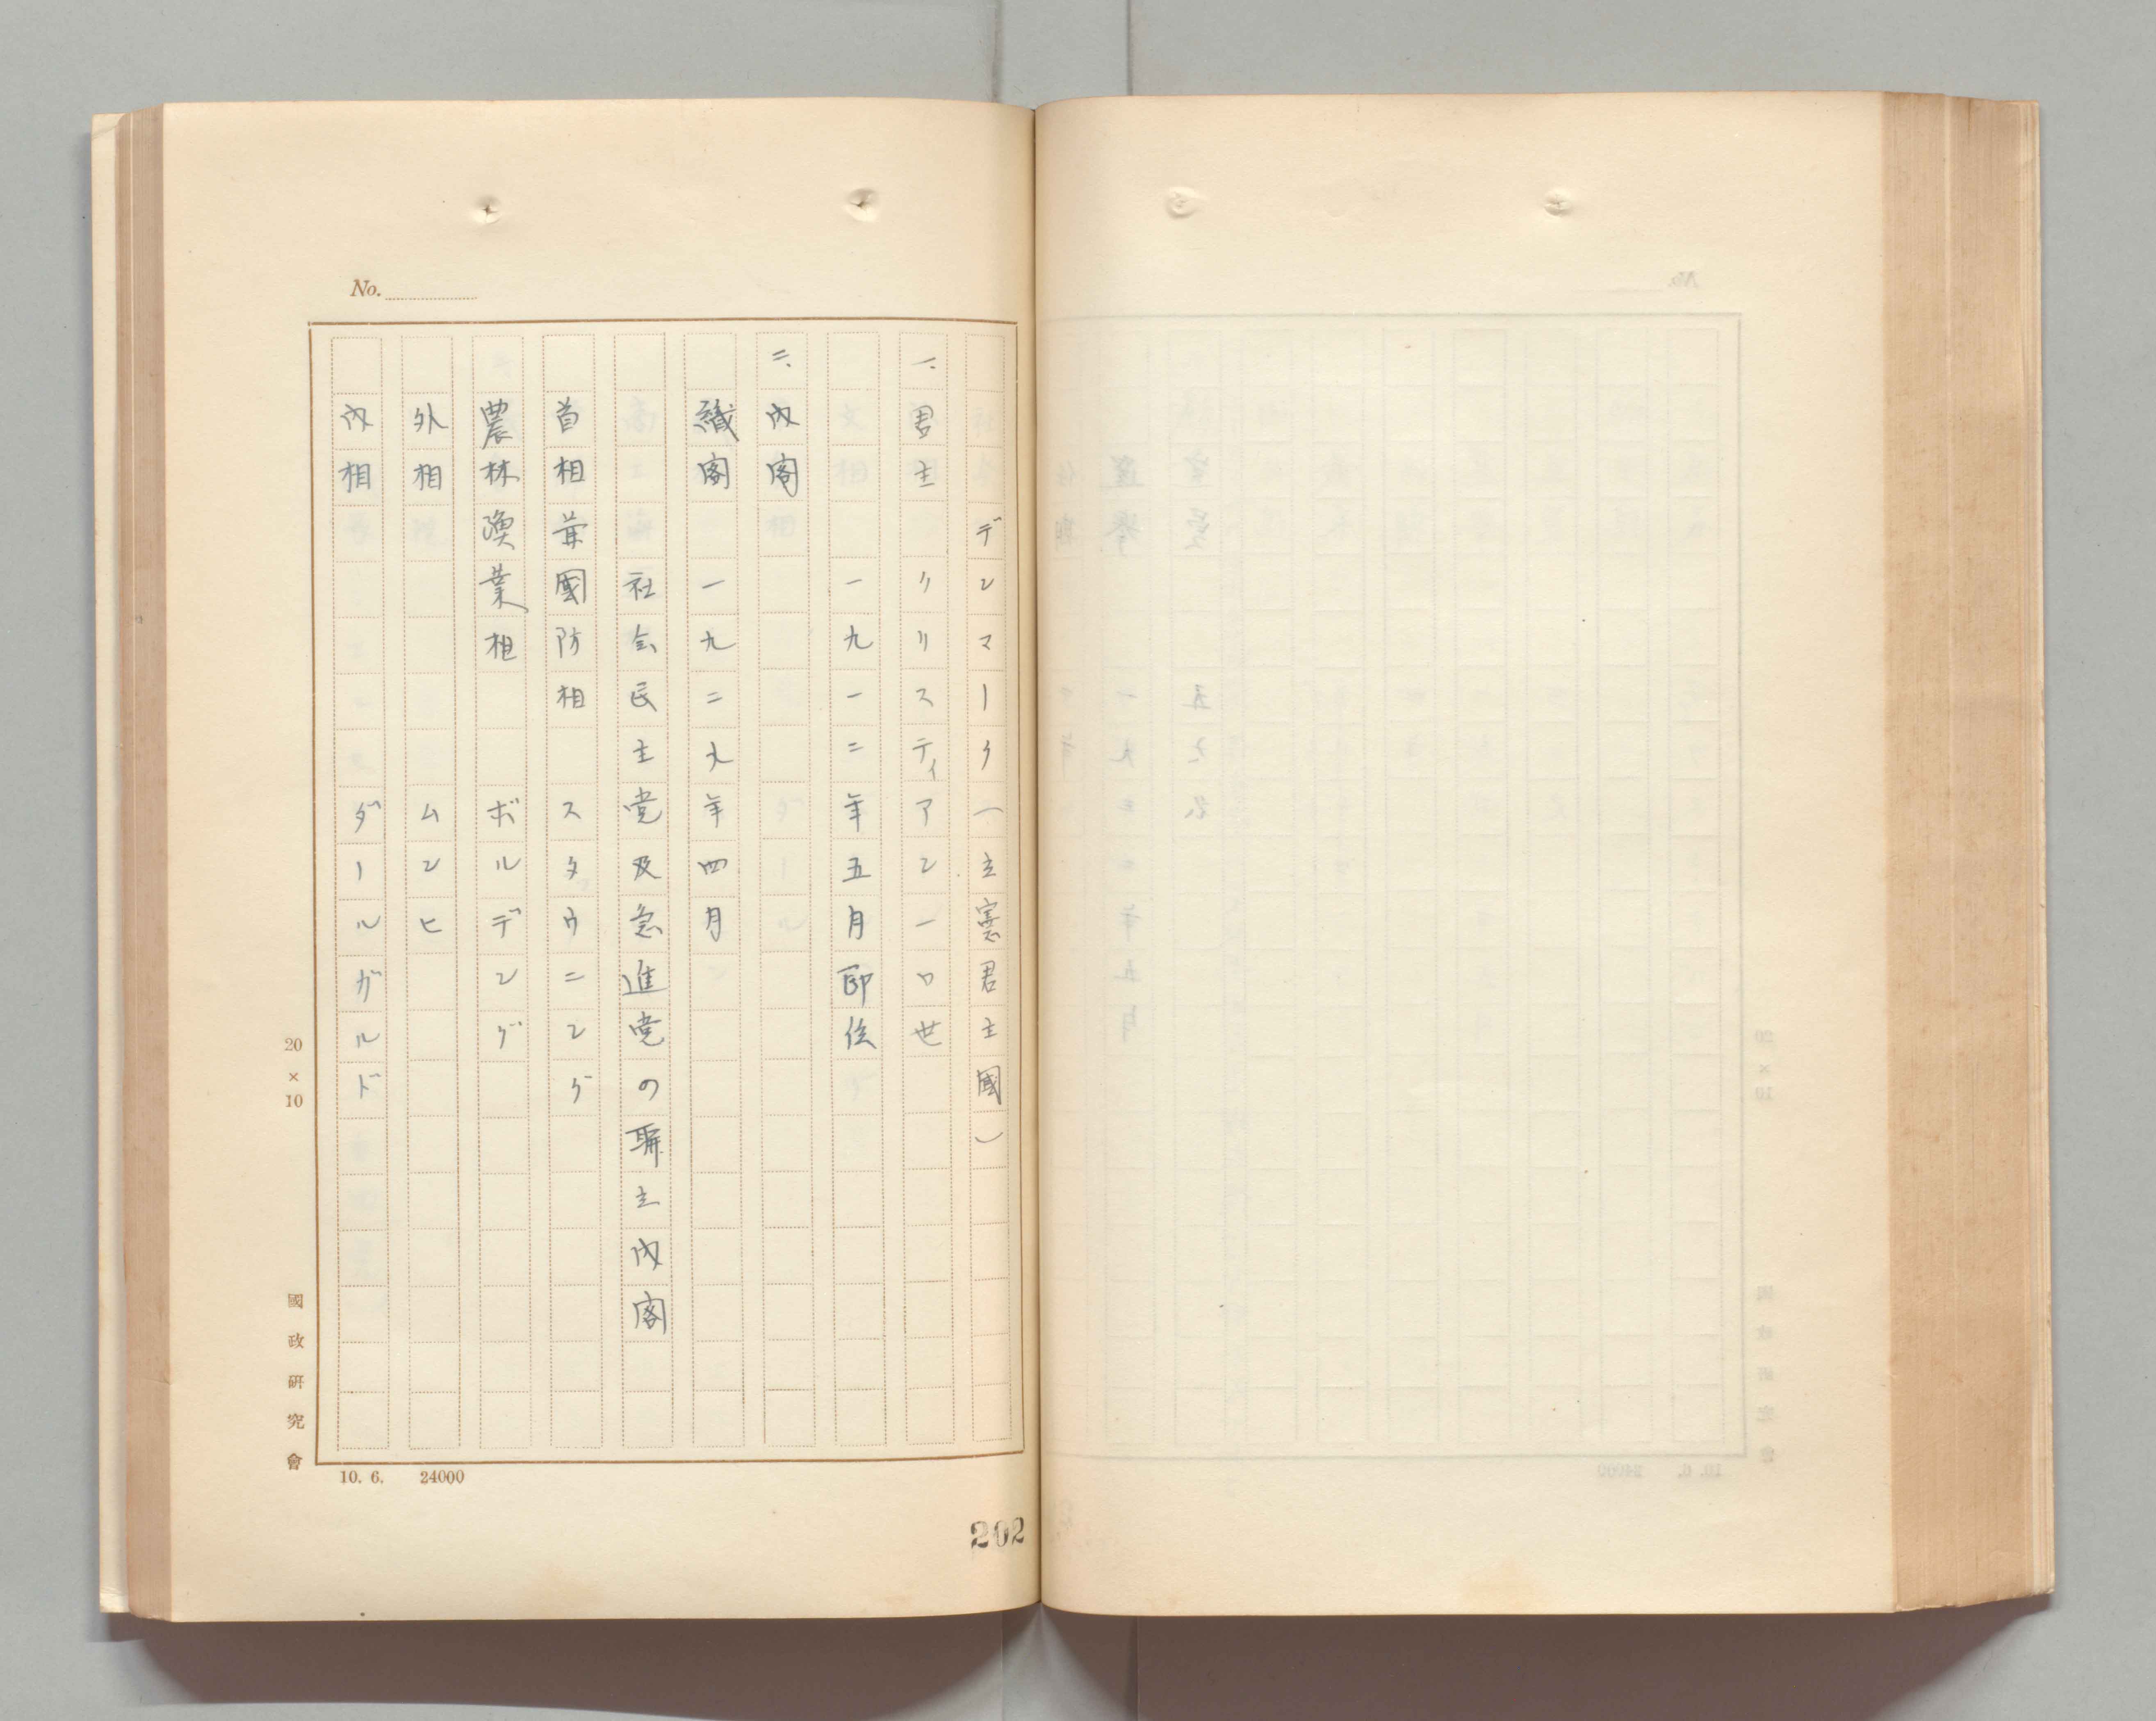 No.
デンマーク(立憲君主國)
一、君主 クリスティアン一〇世
一九一二年五月即位
二、内閣
織閣 一九二九年四月
社会民主党及急進党の聯立内閣
首相兼國防相 スタウニング
農林漁業相 ボルデング
外相 ムンヒ
内相 ダールガルド
20×10
國政硏究會
10. 6. 24000
202